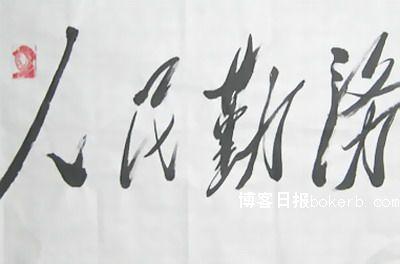 人民勤务
博客日报bokerb.com